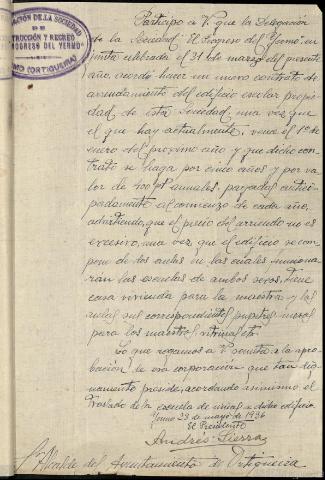 ACIÓN DE LA SOCIEDAD
DE
TRUCCIÓN Y RECREO
ROGRESO DEL YERMO"
MO (ORTIGUEIRA)
Participo a V. que la Delegación
de la Sociedad "El Progreso del Yermo" en
junta celebrada el 31 de marzo del presente
año, acordó hacer un nuevo contrato de
arrendamiento del edificio escolar propie-
dad de esta Sociedad, una vez que
el que hay actualmente, vence el 1º de
enero del próximo año y que dicho con-
trato se haga por cinco años y por va-
lor de 400 pts anuales, pagadas antici-
padamente al comienzo de cada año,
advirtiendo, que el precio del arriendo no es
excesivo, una vez que el edificio se com-
pone de dos aulas en las cuales funciona-
rán las escuelas de ambos sexos, tiene
casa vivienda para la maestra y las
aulas sus correspondientes
para los maestros
Lo que rogamos a V. someta a la apro-
bación de esa corporación que tan dig-
namente preside, acordando asimismo el
traslado de la escuela de niñas a dicho edificio
Yermo 23 de mayo de 1936
El Presidente
Andrés Sierra
Sr. Alcalde del Ayuntamiento de Ortigueira